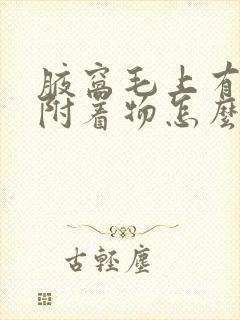 腋窩毛上有
附着物怎麼
古輕塵